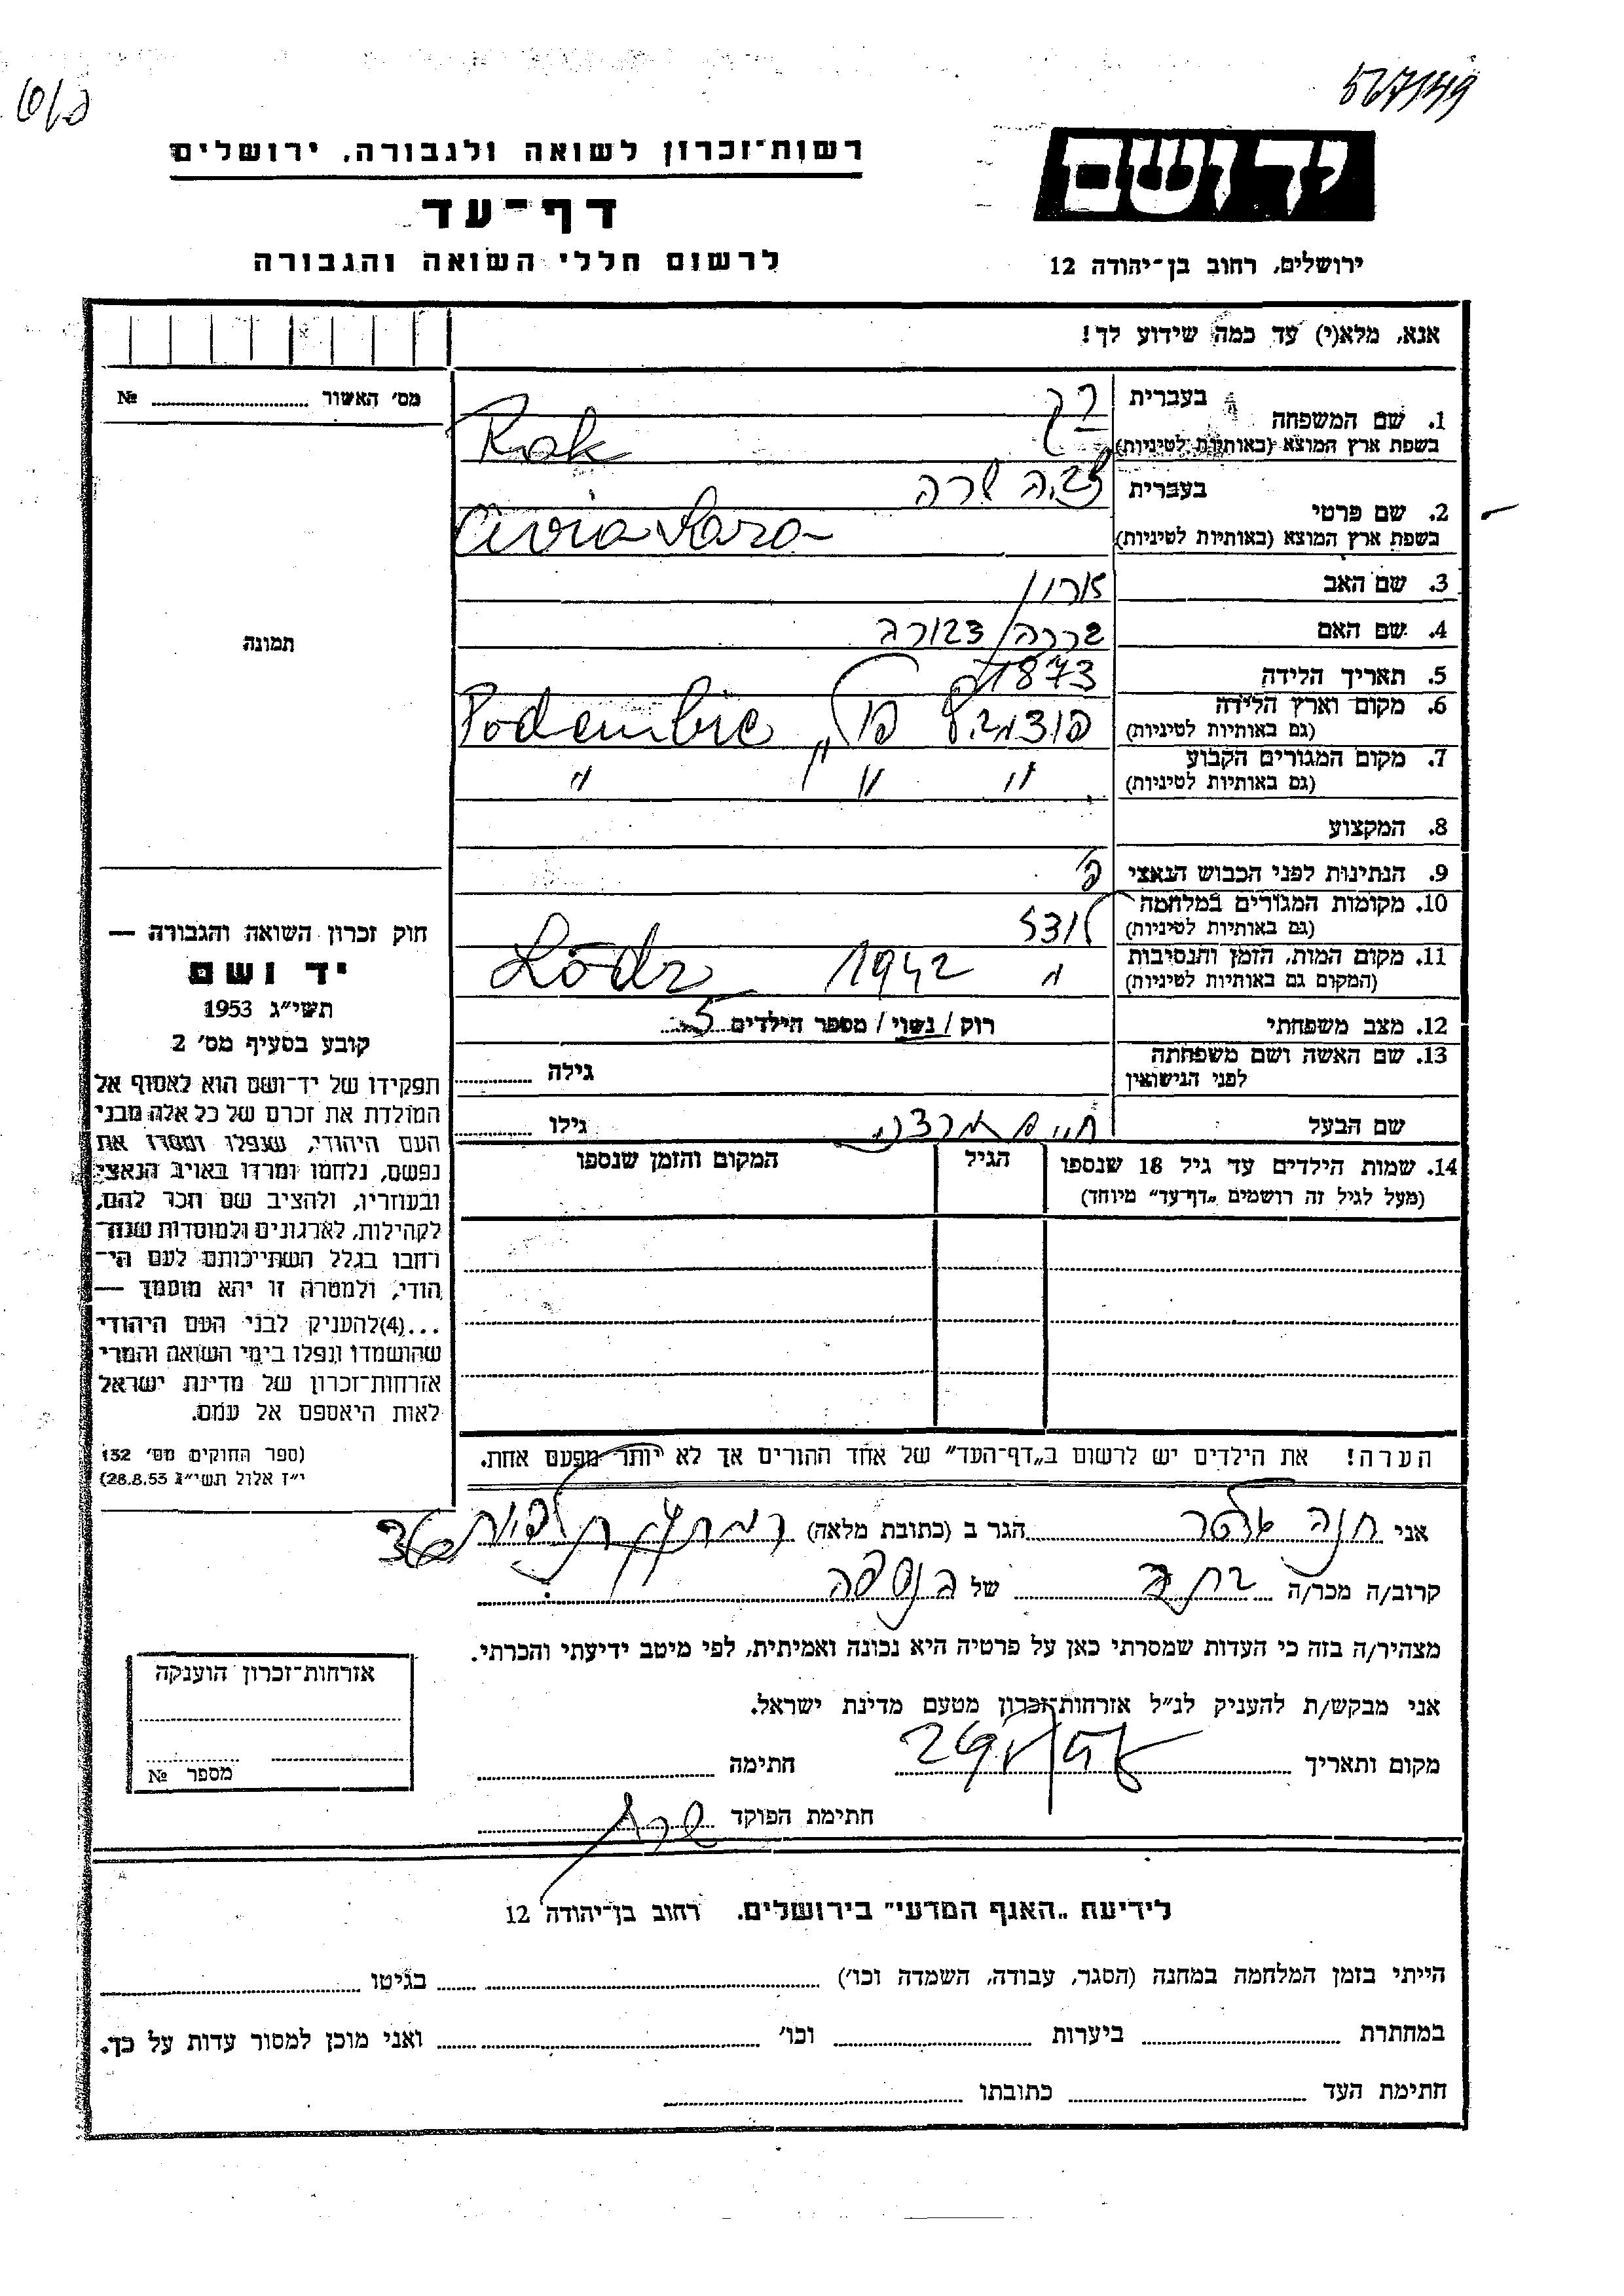 567149
רשות־זכרון לשואה ולגבורה, ירושלים
דף־עד
לרשום חללי השואה והגבורה
יד ושם
ירושלים, רחוב בן־יהודה 12
אנא, מלא(י) עד כמה שידוע לך!
מס׳ האשור № 
1. שם המשפחה
בעברית רק
בשפת ארץ המוצא (באותיות לטיניות) Rak
2. שם פרטי
בעברית צביה שרה
בשפת ארץ המוצא (באותיות לטיניות) Civia Sara
3. שם האב אהרון
4. שם האם
5. תאריך הלידה 1873
6. מקום וארץ הלידה
(גם באותיות לטיניות) Podembie
7. מקום המגורים הקבוע
(גם באותיות לטיניות) " " "
8. המקצוע
9. הנתינות לפני הכבוש הנאצי פ׳
10. מקומות המגורים במלחמה
(גם באותיות לטיניות) לודז
11. מקום המות, הזמן והנסיבות
(המקום גם באותיות לטיניות) " 1942 Lódz
12. מצב משפחתי רוק / נשוי / מספר הילדים 5
13. שם האשה ושם משפחתה
לפני הנישואין גילה
שם הבעל חיים מרדכי גילו
14. שמות הילדים עד גיל 18 שנספו
(מעל לגיל זה רושמים „דף־עד” מיוחד)
הגיל
המקום והזמן שנספו
הערה! את הילדים יש לרשום ב„דף־העד” של אחד ההורים אך לא יותר מפעם אחת.
תמונה
חוק זכרון השואה והגבורה —
יד ושם
תשי״ג 1953
קובע בסעיף מס׳ 2
תפקידו של יד־ושם הוא לאסוף אל
המולדת את זכרם של כל אלה מבני
העם היהודי, שנפלו ומסרו את
נפשם, נלחמו ומרדו באויב הנאצי
ובעוזריו, ולהציב שם וזכר להם,
לקהילות, לארגונים ולמוסדות שנח־
רחבו בגלל השתייכותם לעם הי־
הודי, ולמטרה זו יהא מוסמך —
...(4)להעניק לבני העם היהודי
שהושמדו ונפלו בימי השואה והמרי
אזרחות־זכרון של מדינת ישראל
לאות היאספם אל עמם.
(ספר החוקים מס׳ 132
י״ז אלול תשי״ג 28.8.53)
אני חנה הגר ב (כתובת מלאה) 36
קרוב/ה מכר/ה בתה של הנספה
מצהיר/ה בזה כי העדות שמסרתי כאן על פרטיה היא נכונה ואמיתית, לפי מיטב ידיעתי והכרתי.
אני מבקש/ת להעניק לנ״ל אזרחות־זכרון מטעם מדינת ישראל.
מקום ותאריך חתימה
חתימת הפוקד
אזרחות־זכרון הוענקה
מספר №
לידיעת „האגף המדעי” בירושלים, רחוב בן־יהודה 12
הייתי בזמן המלחמה במחנה (הסגר, עבודה, השמדה וכו׳) בגיטו
במחתרת ביערות וכו׳ ואני מוכן למסור עדות על כך.
חתימת העד כתובתו